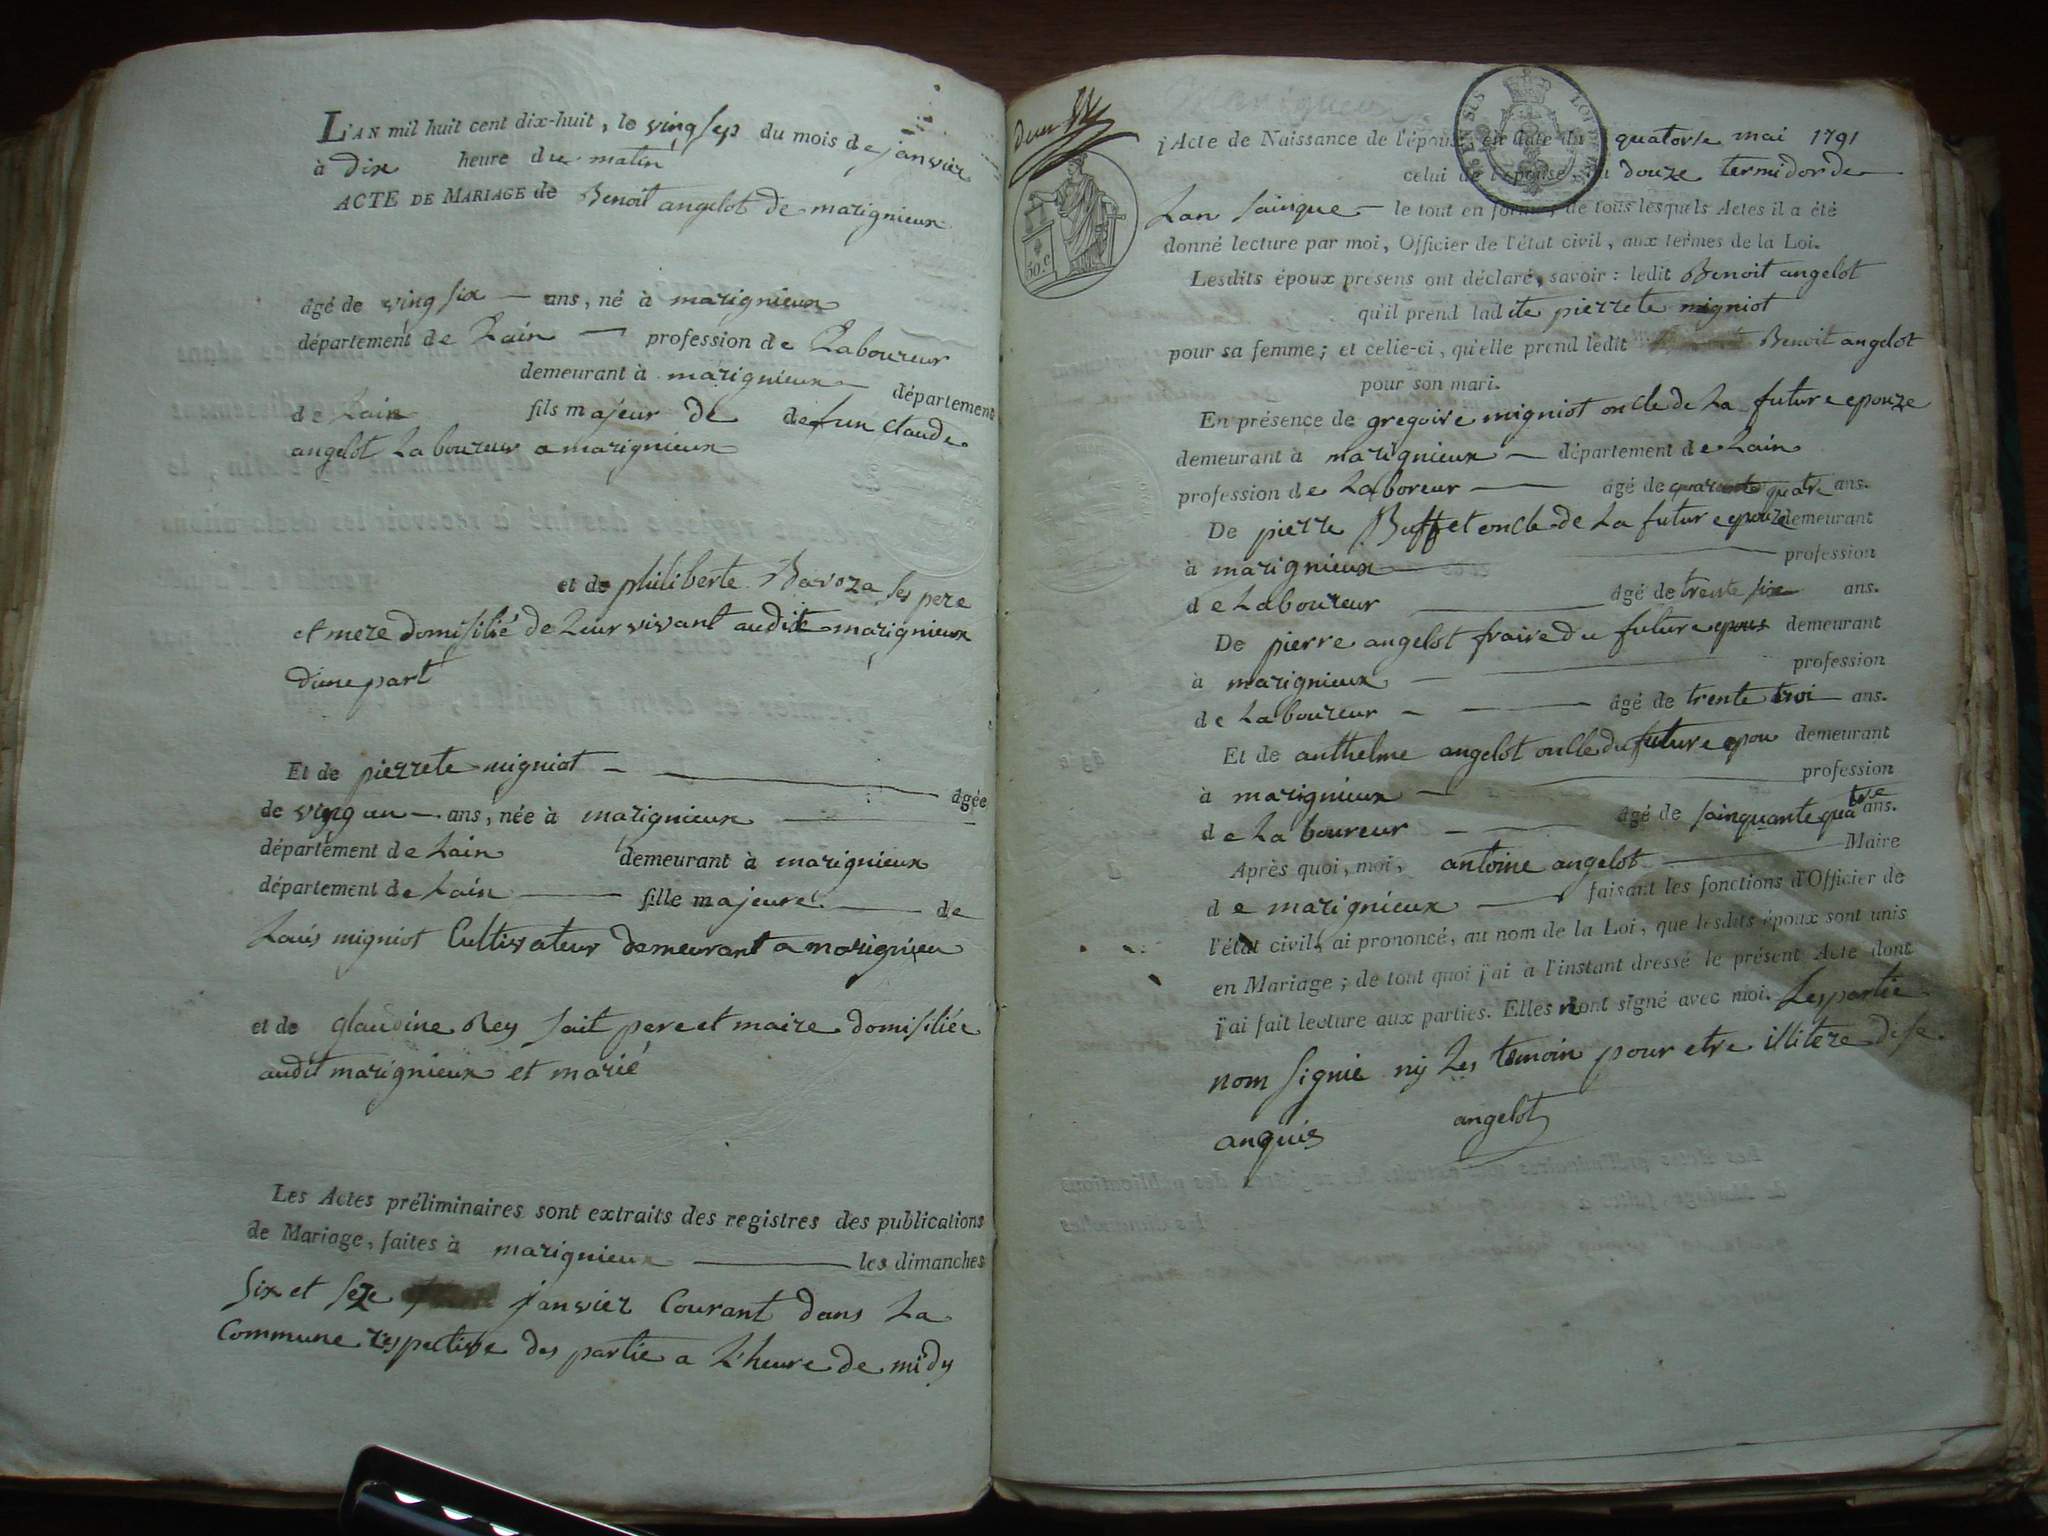 L'AN mil huit cent dix-huit, le ving sep du mois de janvier
à dix heure du matin
ACTE DE MARIAGE de Benoit angelot de marignieux
âgé de ving six ans, né à marignieux
département de Lain profession de Laboureur
demeurant à marignieux département
de Lain fils majeur de defun Claude
angelot Laboureur a marignieux
et de philiberte Bavoza ses pere
et mere domisilié de Leur vivant audit marignieux
dune part
Et de pierrete migniot âgée
de ving un ans, née à marignieux
département de Lain demeurant à marignieux
département de Lain fille majeure de
Louis migniot Cultivateur demeurant a marignieu
et de glaudine Rey sait pere et maire domisiliée
audit marignieux et marié
Les Actes préliminaires sont extraits des registres des publications
de Mariage, faites à marignieux les dimanches
Six et seze janvier Courant dans La
Commune respective des partie a L'heure de midy
50.c
LOI
Acte de Naissance de l'épouse, en date du quatorse mai 1791
celui de l'épouse, du douze termidor de
Lan sainque le tout en forme; de tous lesquels Actes il a été
donné lecture par moi, Officier de l'état civil, aux termes de la Loi.
Lesdits époux présens ont déclaré, savoir: ledit Benoit angelot
qu'il prend ladite pierrete migniot
pour sa femme; et celie-ci, qu'elle prend ledit Benoit angelot
pour son mari.
En présence de gregoire migniot oncle de La future epouze
demeurant à marignieux département de Lain
profession de Laboreur âgé de quarente quatre ans.
De pierre Buffet oncle de La future epouze demeurant
à marignieux profession
de Laboureur âgé de trente six ans.
De pierre angelot fraire du future epous demeurant
à marignieux profession
de Laboureur âgé de trente troi ans.
Et de anthelme angelot onlle du future epou demeurant
à marignieux profession
de La boureur âgé de sainquante quatre ans.
Après quoi, moi, antoine angelot Maire
de marignieux faisant les fonctions d'Officier de
l'état civil, ai prononcé, au nom de la Loi, que lesdits époux sont unis
en Mariage; de tout quoi j'ai à l'instant dressé le présent Acte dont
j'ai fait lecture aux parties. Elles nont signé avec moi. Les partie
nom signié ny Les temoin pour etre illitere de se
anquis angelot